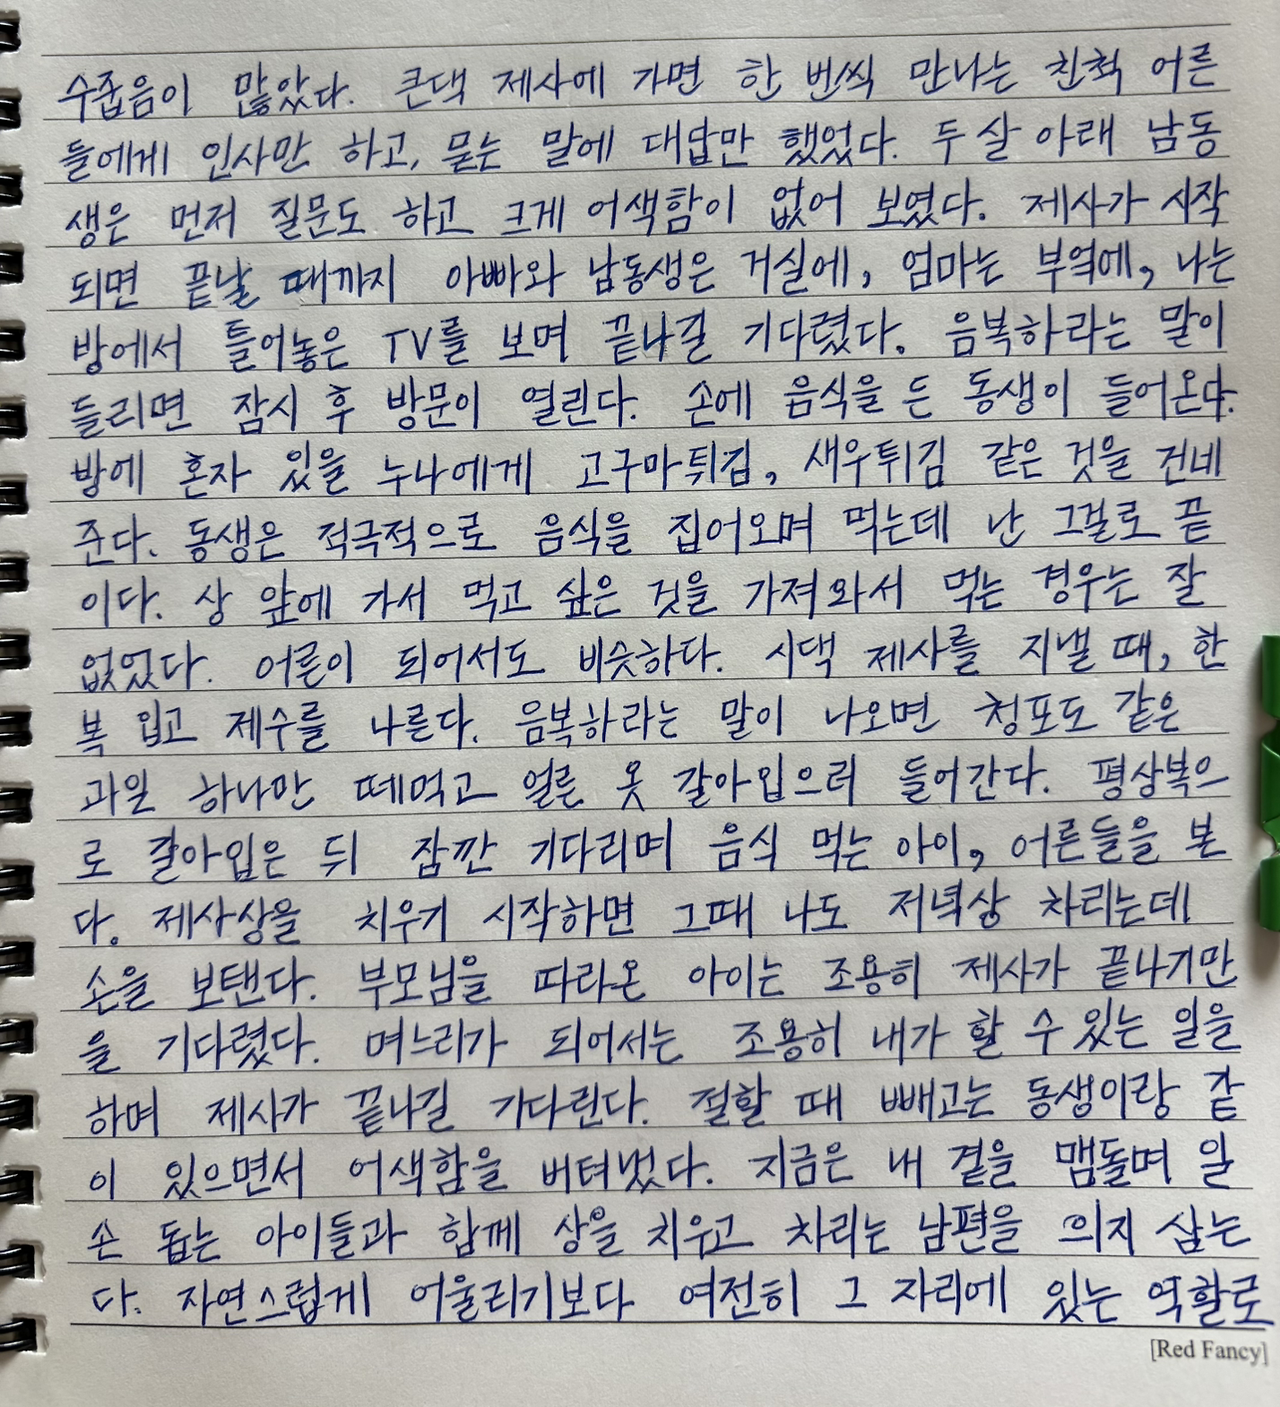 수줍음이 많았다. 큰댁 제사에 가면 한 번씩 만나는 친척 어른
들에게 인사만 하고, 묻는 말에 대답만 했었다. 두 살 아래 남동
생은 먼저 질문도 하고 크게 어색함이 없어 보였다. 제사가 시작
되면 끝날 때까지 아빠와 남동생은 거실에, 엄마는 부엌에, 나는
방에서 틀어놓은 TV를 보며 끝나길 기다렸다. 음복하라는 말이
들리면 잠시 후 방문이 열린다. 손에 음식을 든 동생이 들어온다.
방에 혼자 있을 누나에게 고구마튀김, 새우튀김 같은 것을 건네
준다. 동생은 적극적으로 음식을 집어오며 먹는데 난 그걸로 끝
이다. 상 앞에 가서 먹고 싶은 것을 가져와서 먹는 경우는 잘
없었다. 어른이 되어서도 비슷하다. 시댁 제사를 지낼 때, 한
복 입고 제수를 나른다. 음복하라는 말이 나오면 청포도 같은
과일 하나만 떼먹고 얼른 옷 갈아입으러 들어간다. 평상복으
로 갈아입은 뒤 잠깐 기다리며 음식 먹는 아이, 어른들을 본
다. 제사상을 치우기 시작하면 그때 나도 저녁상 차리는데
손을 보탠다. 부모님을 따라온 아이는 조용히 제사가 끝나기만
을 기다렸다. 며느리가 되어서는 조용히 내가 할 수 있는 일을
하며 제사가 끝나길 기다린다. 절할 때 빼고는 동생이랑 같
이 있으면서 어색함을 버텨냈다. 지금은 내 곁을 맴돌며 일
손 돕는 아이들과 함께 상을 치우고 차리는 남편을 의지 삼는
다. 자연스럽게 어울리기보다 여전히 그 자리에 있는 역할로
[Red Fancy]